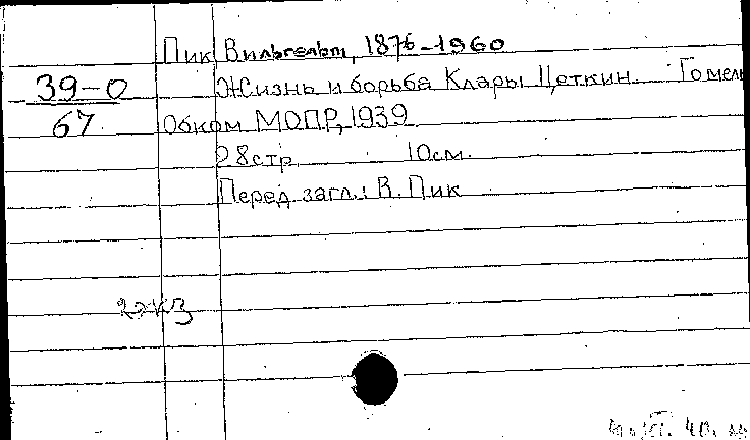 Пик Вильгельм, 1876-1960
39-0
67
Жизнь и борьба Клары Цеткин. Гомель
Обком МОПР, 1939
28стр 10см.
Перед загл.: В. Пик
2экз